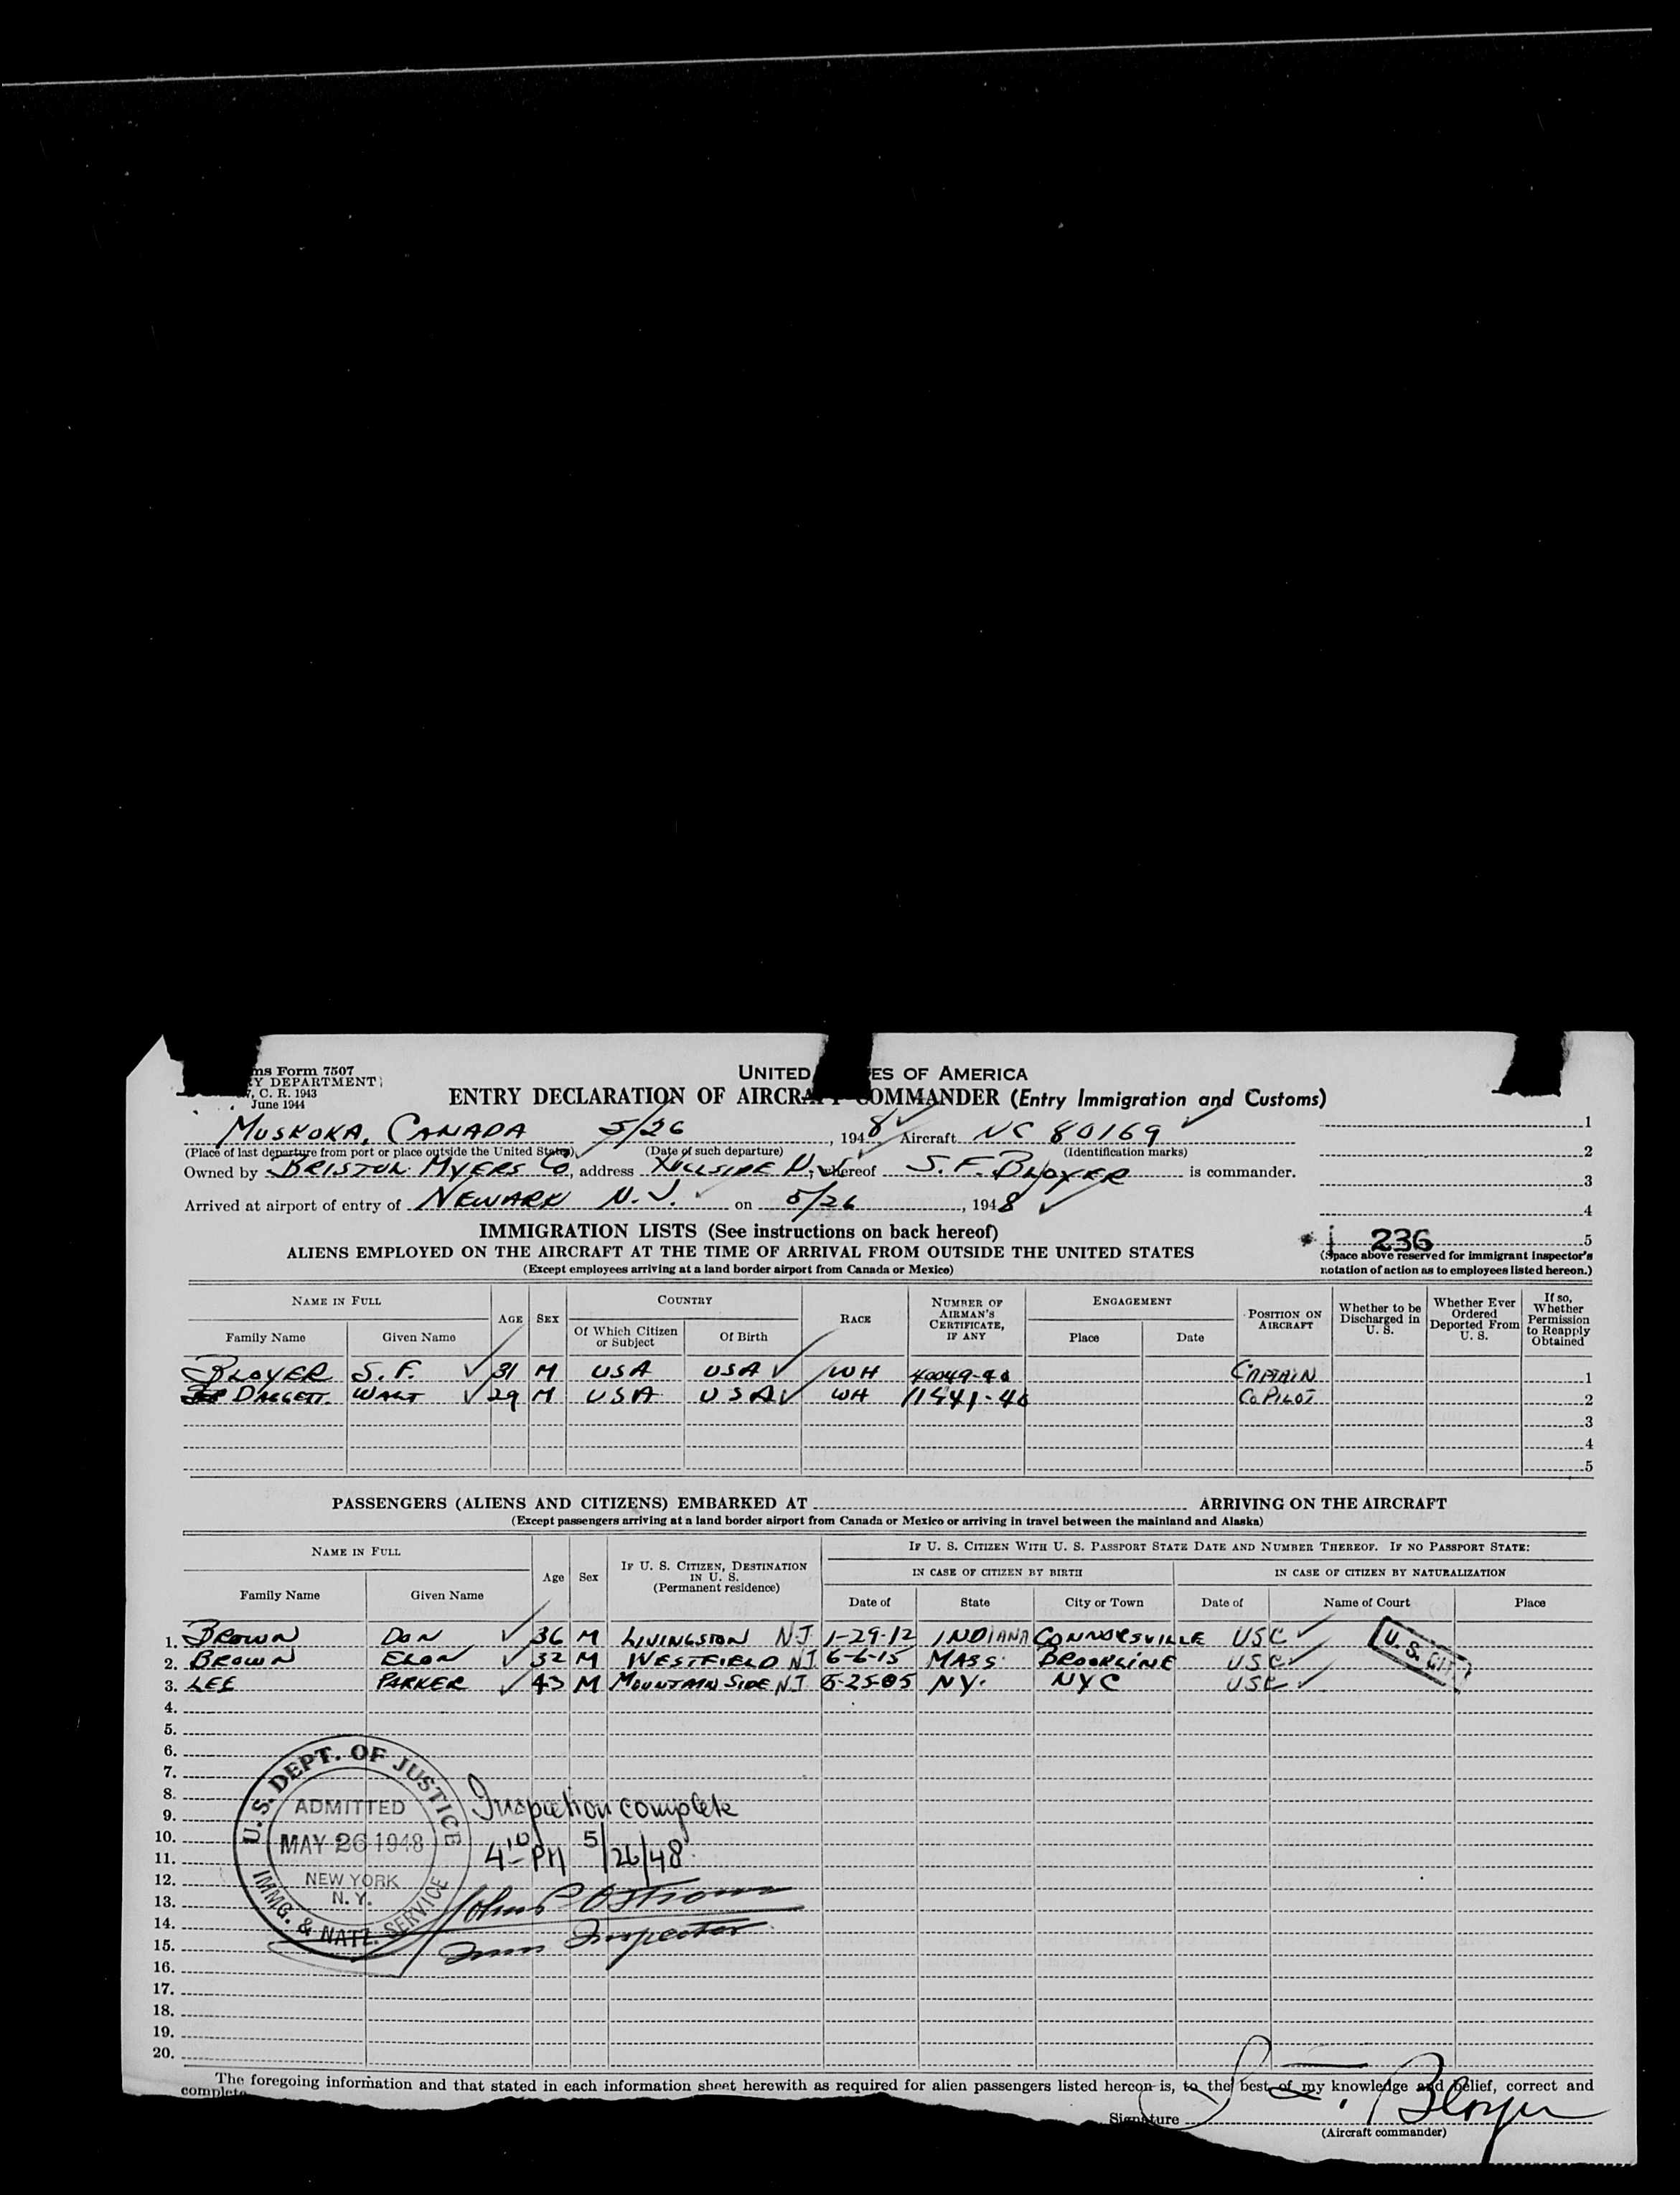 ms Form 7507
Y DEPARTMENT
C. R. 1943
June 1944
UNITED ES OF AMERICA
ENTRY DECLARATION OF AIRCRA COMMANDER (Entry Immigration and Customs)
MUSKOKA, CANADA 5/26, 1948 Aircraft NC 80169
(Place of last departure from port or place outside the United States) (Date of such departure) (Identification marks)
Owned by BRISTOL MYERS Co, address HILLSIDE N.J., whereof S. F. BLOYER is commander.
Arrived at airport of entry of NEWARK N.J. on 5/26, 1948
1
2
3
4
236 5
(Space above reserved for immigrant inspector's notation of action as to employees listed hereon.)
IMMIGRATION LISTS (See instructions on back hereof)
ALIENS EMPLOYED ON THE AIRCRAFT AT THE TIME OF ARRIVAL FROM OUTSIDE THE UNITED STATES
(Except employees arriving at a land border airport from Canada or Mexico)
NAME IN FULL AGE SEX COUNTRY RACE NUMBER OF AIRMAN'S CERTIFICATE, IF ANY ENGAGEMENT POSITION ON AIRCRAFT Whether to be Discharged in U. S. Whether Ever Ordered Deported From U. S. If so, Whether Permission to Reapply Obtained
Family Name Given Name Of Which Citizen or Subject Of Birth Place Date
BLOYER S. F. 31 M USA USA WH 40049-40 CAPTAIN 1
DAGGETT WALT 29 M USA USA WH 11541-40 CoPILOT 2
3
4
5
PASSENGERS (ALIENS AND CITIZENS) EMBARKED AT ARRIVING ON THE AIRCRAFT
(Except passengers arriving at a land border airport from Canada or Mexico or arriving in travel between the mainland and Alaska)
NAME IN FULL Age Sex IF U. S. CITIZEN, DESTINATION IN U. S. (Permanent residence) IF U. S. CITIZEN WITH U. S. PASSPORT STATE DATE AND NUMBER THEREOF. IF NO PASSPORT STATE:
IN CASE OF CITIZEN BY BIRTH IN CASE OF CITIZEN BY NATURALIZATION
Family Name Given Name Date of State City or Town Date of Name of Court Place
1. BROWN DON 36 M LIVINGSTON NJ 1-29-12 INDIANA CONNORSVILLE USC
2. BROWN ELON 32 M WESTFIELD NJ 6-6-15 MASS. BROOKLINE USC
3. LEE PARKER 43 M MOUNTAIN SIDE NJ 5-25-05 NY. NYC USC
U. S. CIT
4.
5.
6.
7.
8.
9.
10.
11.
12.
13.
14.
15.
16.
17.
18.
19.
20.
U. S. DEPT. OF JUSTICE
ADMITTED
MAY 26 1948
NEW YORK
N. Y.
IMMG. & NATZ. SERVICE
Inspection complete
4 10 PM 5/26/48
John Ostrom
Imm Inspector
The foregoing information and that stated in each information sheet herewith as required for alien passengers listed hereon is, to the best of my knowledge and belief, correct and
complete
Signature S. F. Bloyer
(Aircraft commander)